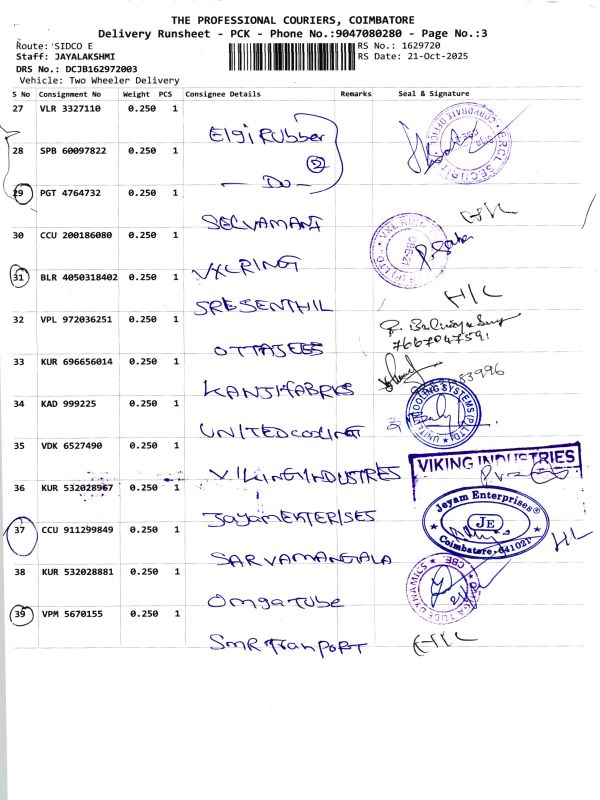 THE PROFESSIONAL COURIERS, COIMBATORE
Delivery Runsheet - PCK - Phone No.:9047080280 - Page No.:3
Route: SIDCO E
RS No.: 1629720
Staff: JAYALAKSHMI
RS Date: 21-Oct-2025
DRS No.: DCJB162972003
Vehicle: Two Wheeler Delivery
S No Consignment No Weight PCS Consignee Details Remarks Seal & Signature
27 VLR 3327110 0.250 1
Elgi Rubber
28 SPB 60097822 0.250 1
- Do -
29 PGT 4764732 0.250 1
SELVAMANI H/L
30 CCU 200186080 0.250 1
VXLRING
31 BLR 4050318402 0.250 1
SRESENTHIL H/L
32 VPL 972036251 0.250 1
7667047591
OTTAJEES
33 KUR 696656014 0.250 1
83996
KANJIFABRKS
34 KAD 999225 0.250 1
UNITED COOLING SYSTEMS (P) LTD
UNITEDCOOLING
35 VDK 6527490 0.250 1
VIKING INDUSTRIES
VIKINGINDUSTRES
36 KUR 532028967 0.250 1
Jeyam Enterprises®
JE
Coimbatore - 641021
JayamENTERISES
37 CCU 911299849 0.250 1
SARVAMANGALA H/L
38 KUR 532028881 0.250 1
OmgaTube
39 VPM 5670155 0.250 1
SMRTranPORT H/L